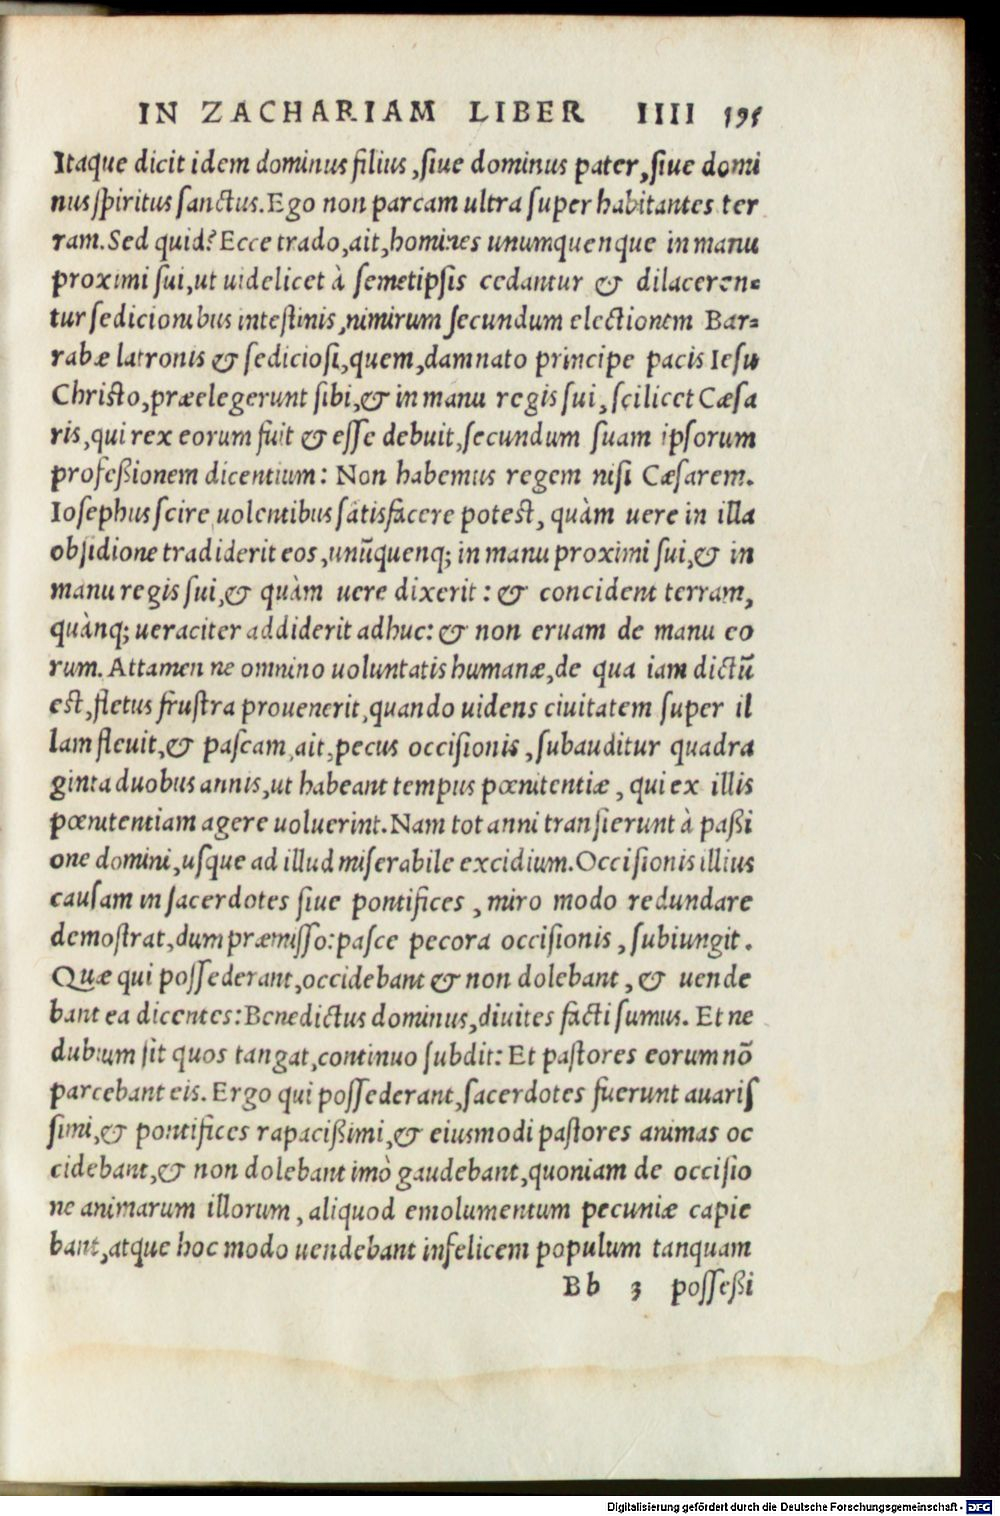 IN ZACHARIAM LIBER IIII 195
Itaque dicit idem dominus filius, siue dominus pater, siue domi
nus spiritus sanctus. Ego non parcam ultra super habitantes ter
ram. Sed quid? Ecce trado, ait, homines unumquenque in manu
proximi sui, ut uidelicet à semetipsis cedantur & dilaceren=
tur sedicionibus intestinis, nimirum secundum electionem Bar=
rabæ latronis & sediciosi, quem, damnato principe pacis Iesu
Christo, præelegerunt sibi, & in manu regis sui, scilicet Cæsa
ris, qui rex eorum fuit & esse debuit, secundum suam ipsorum
profeßionem dicentium: Non habemus regem nisi Cæsarem.
Iosephus scire uolentibus satisfacere potest, quàm uere in illa
obsidione tradiderit eos, unūquenq; in manu proximi sui, & in
manu regis sui, & quàm uere dixerit: & concident terram,
quànq; ueraciter addiderit adhuc: & non eruam de manu eo
rum. Attamen ne omnino uoluntatis humanæ, de qua iam dictū
est, fletus frustra prouenerit, quando uidens ciuitatem super il
lam fleuit, & pascam, ait, pecus occisionis, subauditur quadra
ginta duobus annis, ut habeant tempus pœnitentiæ, qui ex illis
pœnitentiam agere uoluerint. Nam tot anni transierunt à paßi
one domini, usque ad illud miserabile excidium. Occisionis illius
causam in sacerdotes siue pontifices, miro modo redundare
demostrat, dum præmisso: pasce pecora occisionis, subiungit.
Quæ qui possederant, occidebant & non dolebant, & uende
bant ea dicentes: Benedictus dominus, diuites facti sumus. Et ne
dubium sit quos tangat, continuo subdit: Et pastores eorum nō
parcebant eis. Ergo qui possederant, sacerdotes fuerunt auaris
simi, & pontifices rapacißimi, & eiusmodi pastores animas oc
cidebant, & non dolebant imò gaudebant, quoniam de occisio
ne animarum illorum, aliquod emolumentum pecuniæ capie
bant, atque hoc modo uendebant infelicem populum tanquam
Bb 3 posseßi
Digitalisierung gefördert durch die Deutsche Forschungsgemeinschaft - DFG